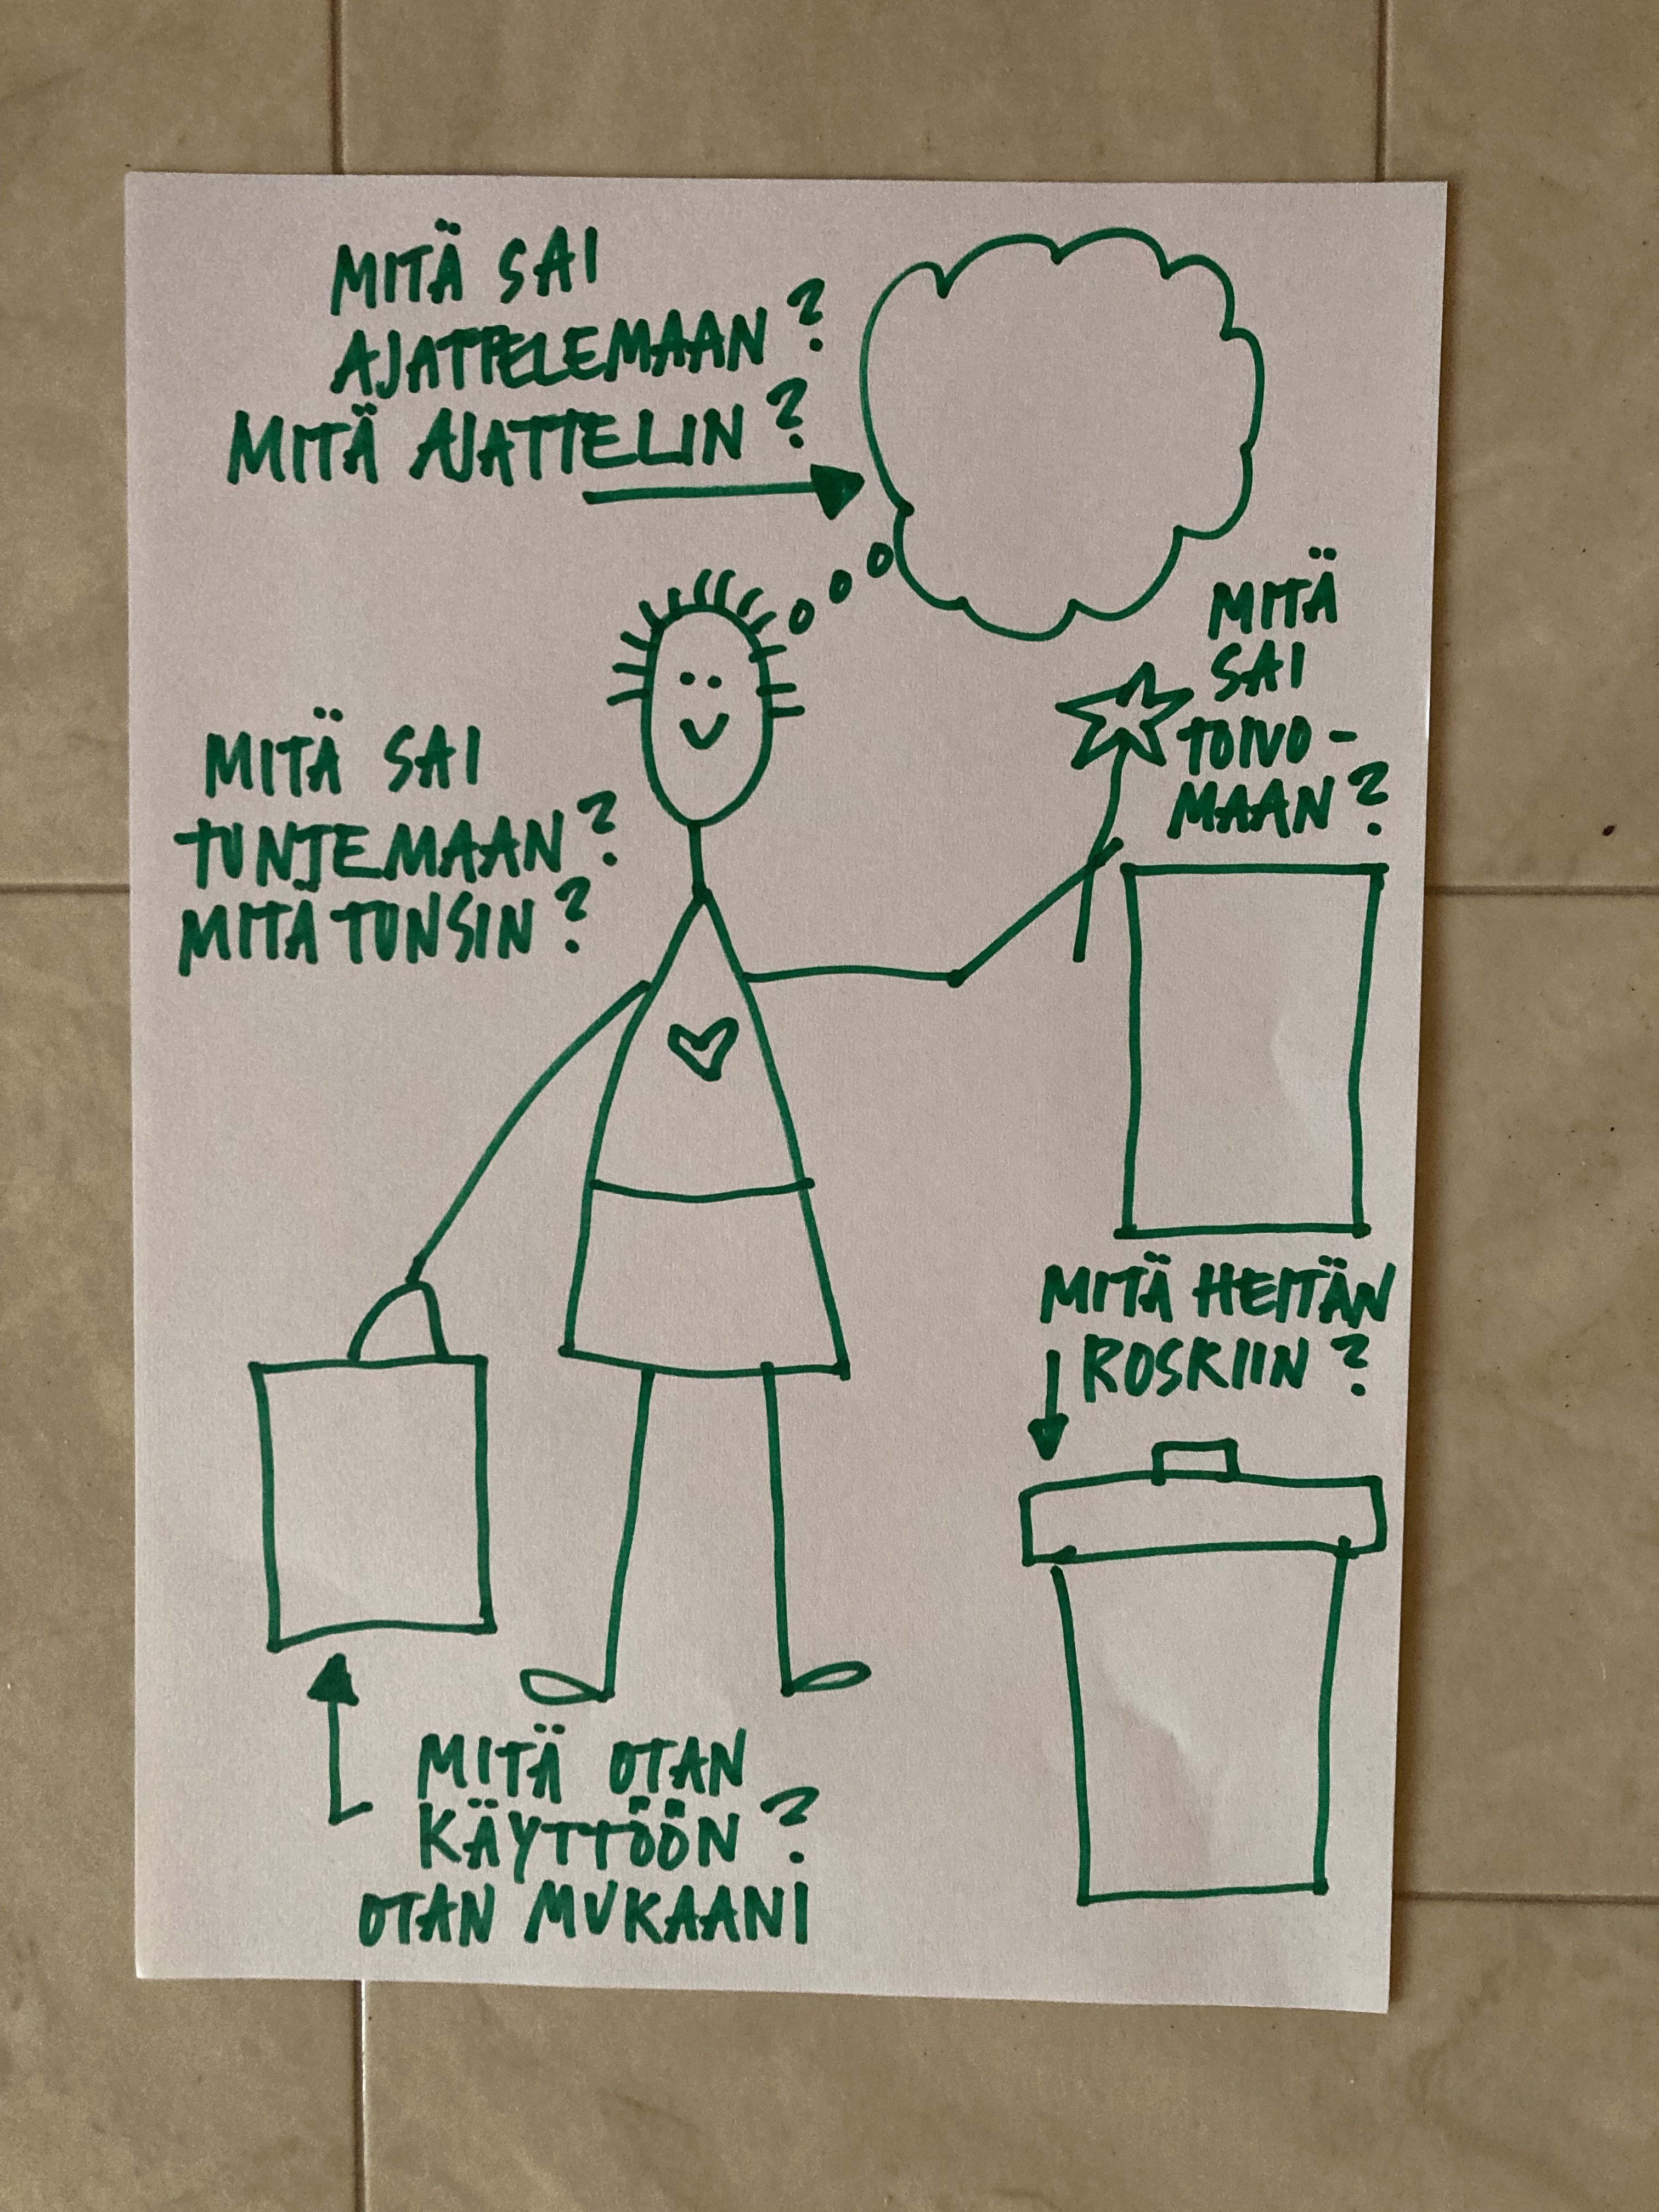 MITÄ SAI
AJATTELEMAAN?
MITÄ AJATTELIN?
MITÄ
SAI
TOIVO-
MAAN?
MITÄ SAI
TUNTEMAAN?
MITÄ TUNSIN?
MITÄ HEITÄN
ROSKIIN?
MITÄ OTAN
KÄYTTÖÖN?
OTAN MUKAANI